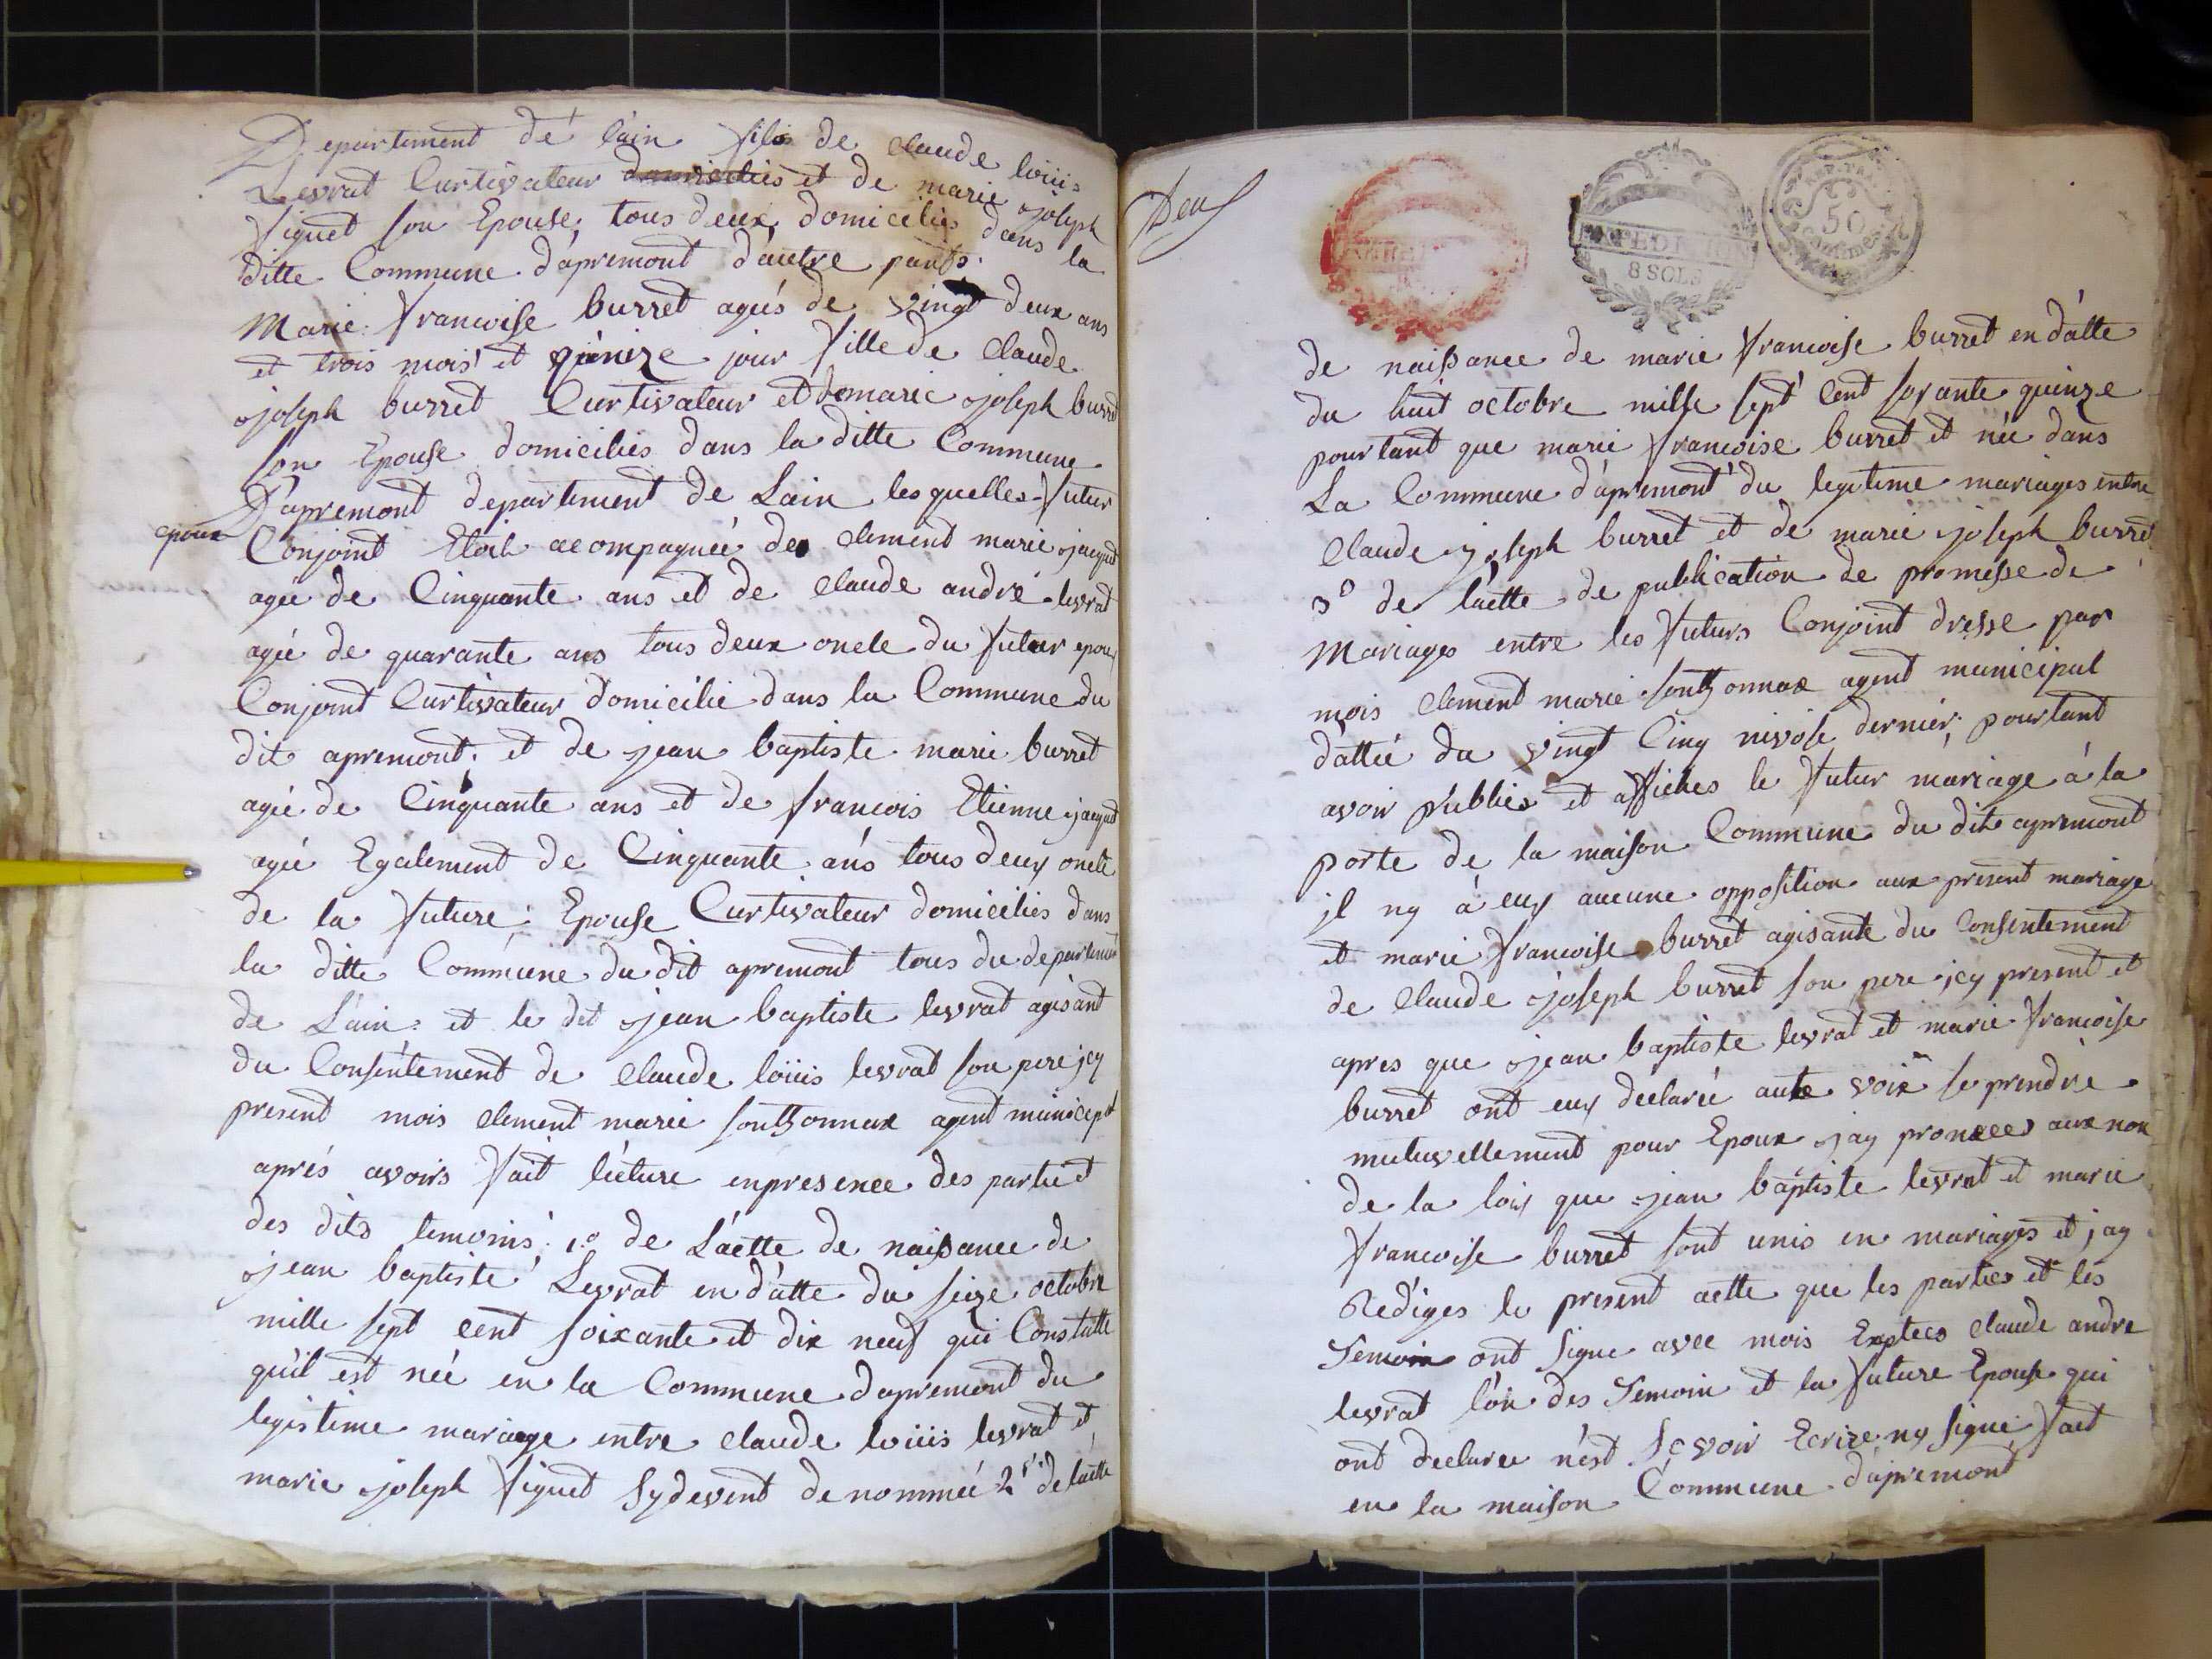 Departement de lain fils de claude loüis
Levrat Curtivateur et de marie joseph
figuet son Epouse, tous deux domicilies dans la
ditte Commune dapremont dautre parts.
Marie francoise burret ageés de vingt deux ans
et trois mois et quinze jour fille de claude
joseph burret Curtivateur et de marie joseph burret
son Epouse domiciliés dans la ditte Commune
D'apremont departement de Lain les quelles futur
epoux
Conjoint Etoit acompagneé de clement marie jacquet
ageé de Cinquante ans et de claude andré levrat
ageé de quarante ans tous deux oncle du futur epoux
Conjoint Curtivateur domicilié dans la Commune du
dit apremont; et de jean baptiste marie burret
ageé de Cinquante ans et de francois Etienne jacquet
ageé Egalement de Cinquante ans tous deux oncle
de la future Epouse Curtivateur domiciliés dans
la ditte Commune du dit apremont tous du departement
de Lain et le dit jean baptiste levrat agisant
du Consentement de claude loüis levrat son pere jcy
present mois clement marie sonthonnax agent municipal
aprés avoirs fait lécture enpresence des partie et
des dits temoins 1.º de L'actte de naissance de
jean baptiste Levrat en datte du seize octobre
mille sept cent soixante et dix neuf qui Constatte
quil est neé en la Commune dapremont du
legistime mariage entre claude loüis levrat et
marie joseph figuet sydevent denommeé 2º de lactte
Deux
EXPEDITION
8 SOLS
REP. FRA.
50
Centimes
de naissance de marie francoise burret en datte
du huit octobre mille sept cent soyante quinze
pourtant que marie francoise burret et neé dans
La Commune d'apremont du legitime mariages entre
Claude joseph burret et de marie joseph burret
3º de lactte de publication de promesse de
Mariages entre les futurs Conjoint dresse par
mois clement marie sonthonnax agent municipal
dattée du vingt Cinq nivose dernier; pourtant
avoir publies et affiches le futur mariage à la
porte de la maison Commune du dit apremont
jl ny à euy aucune opposition aux present mariage
et marie francoise burret agisante du Consentement
de Claude joseph burret son pere jcy present et
apres que jean baptiste levrat et marie francoise
burret ont euy declareé aute voix se prendre
mutuvellement pour Epoux jay pronxces aux non
de la loix que jean baptiste levrat et marie
francoise burret sont unis en mariages et jay
Rediges le present actte que les parties et les
Temoin ont signe avec mois Exptees claude andre
levrat l'on des Temoin et la future Epouse qui
ont declaree nest scavoir Ecrire ny signe fait
en la maison Commune d'apremont